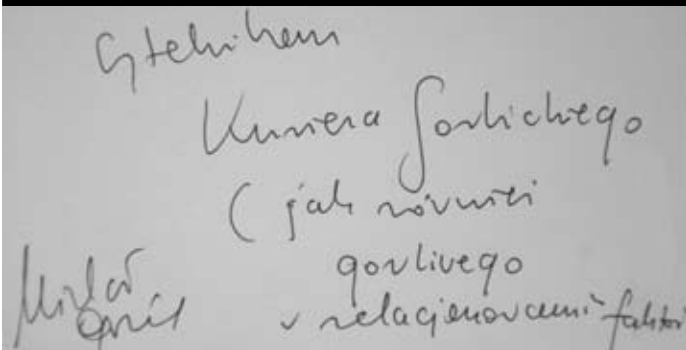 Czytelnikom
Kuriera Gorlickiego
( jak również
gorliwego
w relacjonowaniu faktów